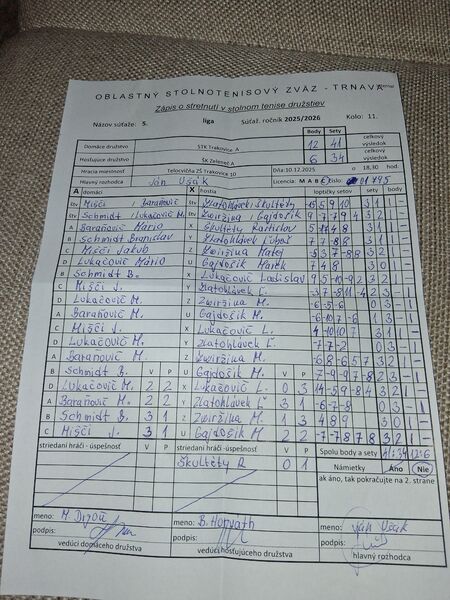 OBLASTNÝ STOLNOTENISOVÝ ZVÄZ - TRNAVA
Zápis o stretnutí v stolnom tenise družstiev
Názov súťaže: 5. liga Súťaž. ročník 2025/2026 Kolo: 11.
Body Sety
Domáce družstvo STK Trakovice A 12 41 celkový výsledok
Hosťujúce družstvo ŠK Zeleneč A 6 34 celkový výsledok
Hracia miestnosť Telocvičňa ZŠ Trakovice 10 Dňa: 10.12.2025 o 18,30 hod.
Hlavný rozhodca Ján Ušák Licencia: M A B C číslo: 01795
A domáci X hostia loptičky setov sety body
Štv Mišči / Baraňovič Štv Zlatohlávek Škultéty 3 1 1
Štv Schmidt / Lukačovič M. Štv Zvirzina / Gajdošík 9 7 7 9 4 3 2 1
A Baraňovič Mário X Škultéty Rastislav 3 1 1
B Schmidt Branislav Y Zlatohlávek Ľuboš 3 1 1
C Mišči Jakub Z Zvirzina Matej 3 2 1
D Lukačovič Mário U Gajdošík Marek 7 4 8 3 0 1
B Schmidt B. X Lukačovič Ladislav 3 2 1
C Mišči J. Y Zlatohlávek Ľ. 2 3 - 1
D Lukačovič M. Z Zvirzina M. -6-5-6 0 3 - 1
A Baraňovič M. U Gajdošík M. 1 3 - 1
C Mišči J. X Lukačovič L. 4-10 10 7 3 1 1
D Lukačovič M. Y Zlatohlávek Ľ. -7-7-2 0 3 - 1
A Baraňovič M. Z Zvirzina M. -6 8-6 5 7 3 2 1
B Schmidt B. V P U Gajdošík M. V P 7-9-9 7-8 2 3 - 1
D Lukačovič M. 2 2 X Lukačovič L. 0 3 14-5 9-8 4 3 2 1
A Baraňovič M. 2 2 Y Zlatohlávek Ľ. 3 1 -6-7-8 0 3 - 1
B Schmidt B. 3 1 Z Zvirzina M. 1 3 4 8 9 3 0 1
C Mišči J. 3 1 U Gajdošík M. 2 2 -7-7 8 7 8 3 2 1
striedaní hráči - úspešnosť V P striedaní hráči - úspešnosť V P Spolu body a sety 41:34 12:6
Škultéty R 0 1 Námietky Áno Nie
ak áno, tak pokračujte na 2. strane
meno: meno: B. Horváth meno: Ján Ušák
podpis: podpis: podpis:
vedúci domáceho družstva vedúci hosťujúceho družstva hlavný rozhodca